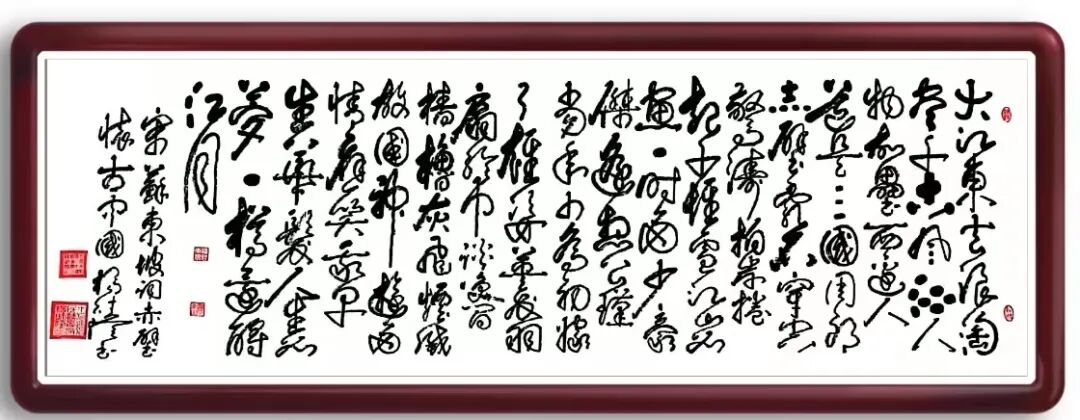 大江東去浪淘
盡千古風流人
物故壘西邊人
道是三國周郎
赤壁亂石穿空
驚濤拍岸捲
起千堆雪江山如
畫一時多少豪
傑遙想公瑾
當年小喬初嫁
了雄姿英發羽
扇綸巾談笑間
檣櫓灰飛煙滅
故國神遊多
情應笑我早
生華髮人生如
夢一樽還酹
江月
宋蘇東坡詞赤壁
懷古中國書